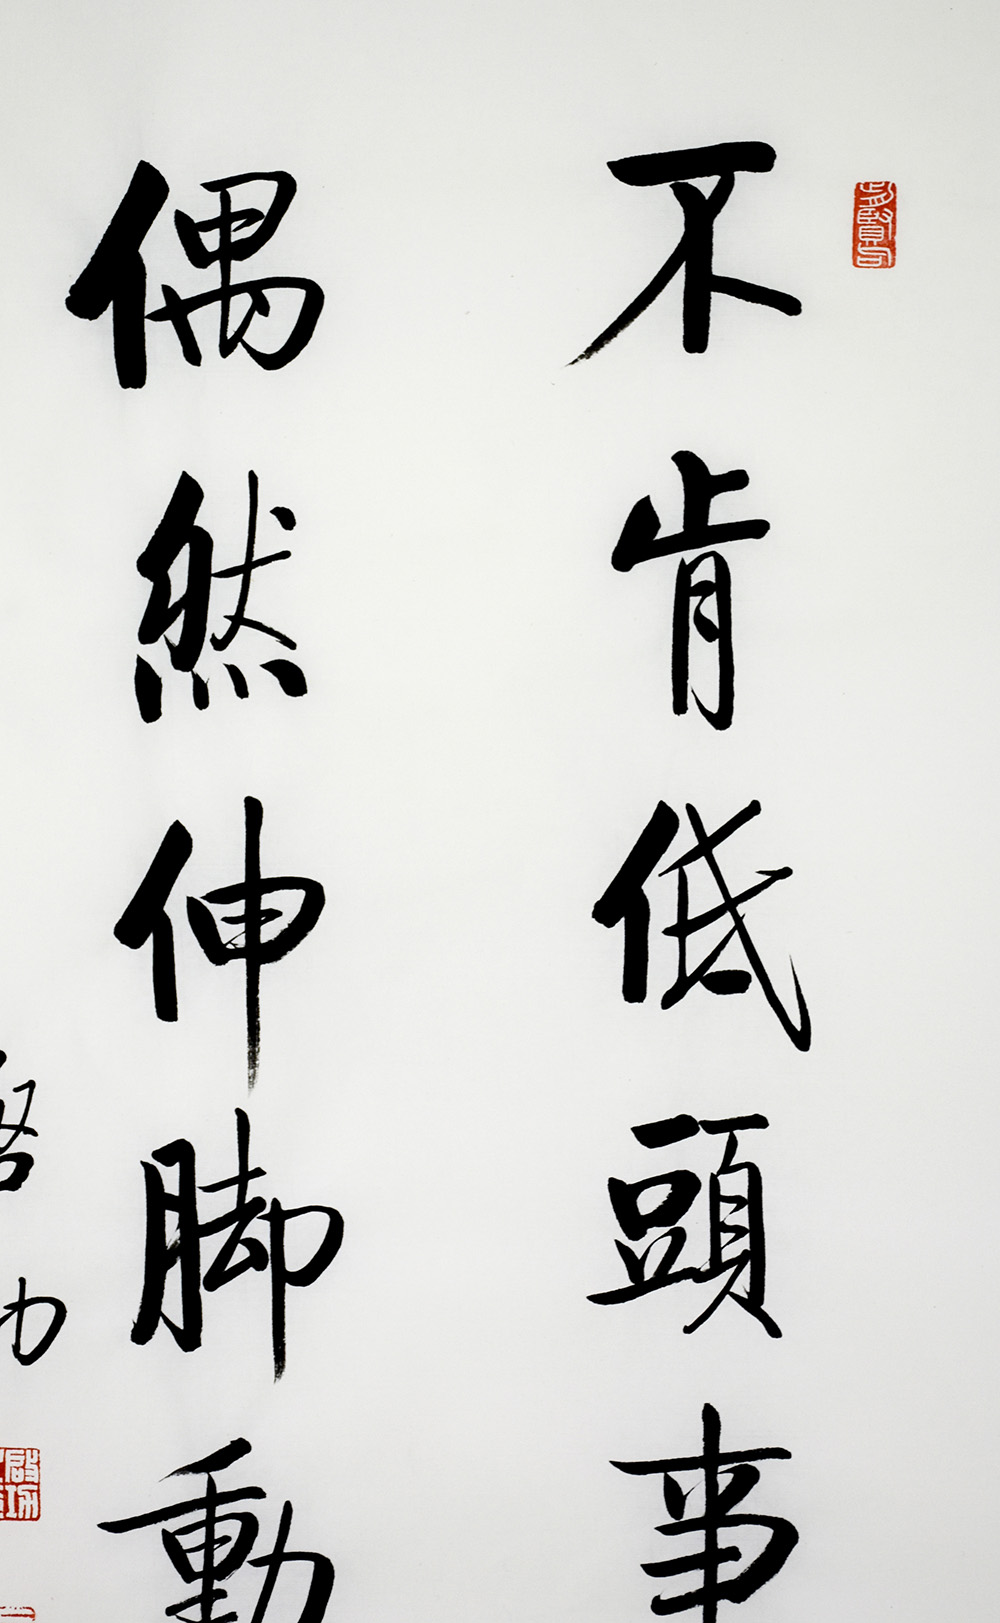 不肯低頭事
偶然伸脚動
啓功
啟功